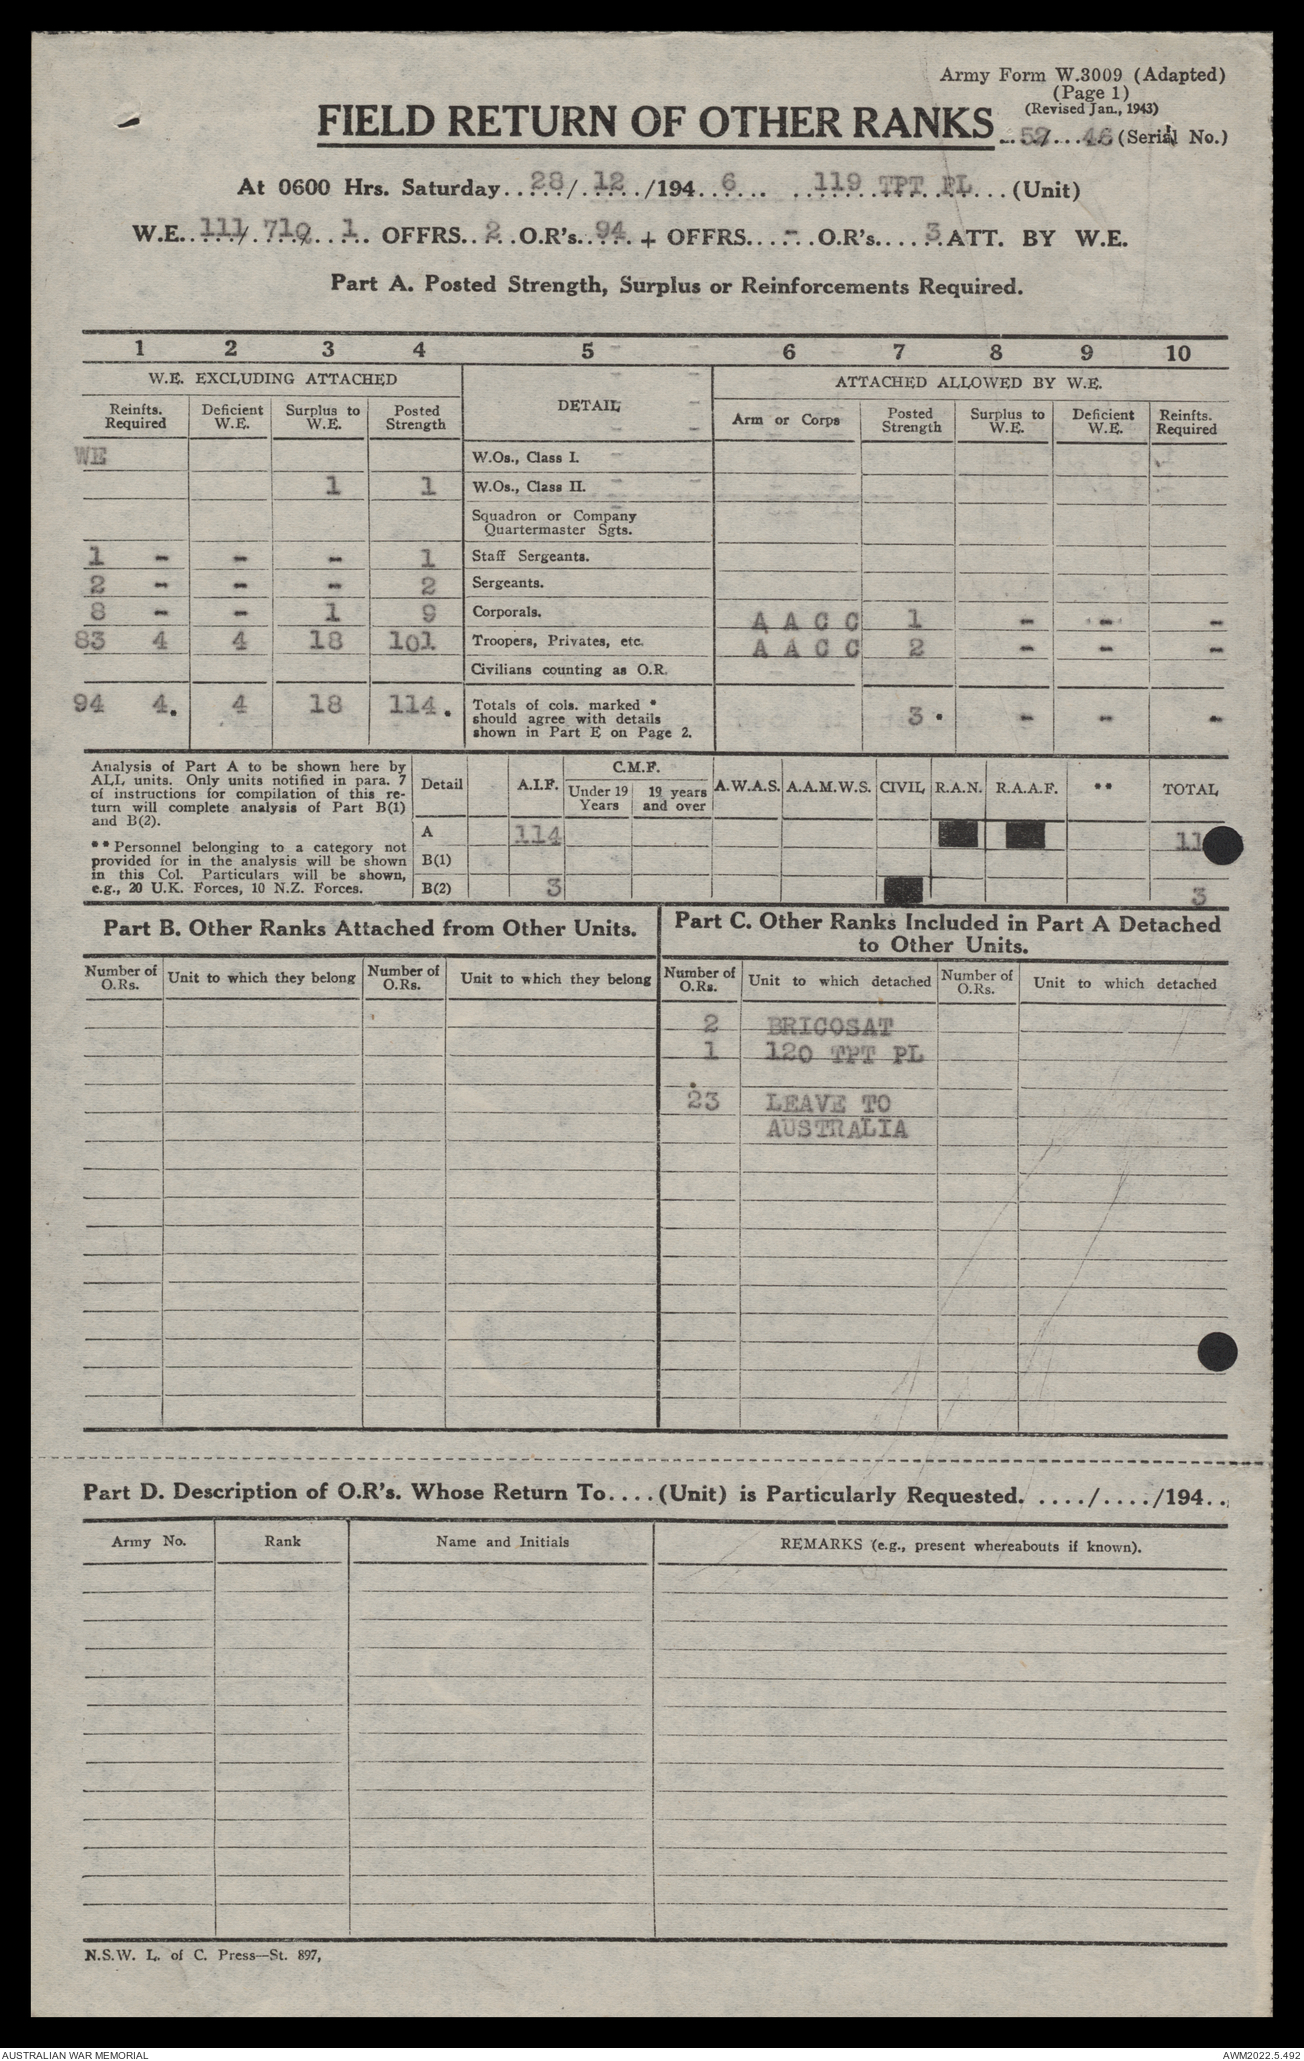 Army Form W.3009 (Adapted)
(Page 1)
(Revised Jan., 1943)
FIELD RETURN OF OTHER RANKS ..52/...46 (Serial No.)
At 0600 Hrs. Saturday....28/..12../194..6.... ....119 TPT PL...(Unit)
W.E...111/.710/..1.. OFFRS..2..O.R's..94. + OFFRS...-..O.R's.....3 ATT. BY W.E.
Part A. Posted Strength, Surplus or Reinforcements Required.
1 2 3 4 5 6 7 8 9 10
W.E. EXCLUDING ATTACHED DETAIL ATTACHED ALLOWED BY W.E.
Reinfts. Required Deficient W.E. Surplus to W.E. Posted Strength Arm or Corps Posted Strength Surplus to W.E. Deficient W.E. Reinfts. Required
WE W.Os., Class I.
1 1 W.Os., Class II.
Squadron or Company
Quartermaster Sgts.
1 - - - 1 Staff Sergeants.
2 - - - 2 Sergeants.
8 - - 1 9 Corporals. A A C C 1 - - -
83 4 4 18 101 Troopers, Privates, etc. A A C C 2 - - -
Civilians counting as O.R.
94 4. 4 18 114. Totals of cols. marked *
should agree with details
shown in Part E on Page 2. 3 . - - -
Analysis of Part A to be shown here by
ALL units. Only units notified in para. 7
of instructions for compilation of this re-
turn will complete analysis of Part B(1)
and B(2).
** Personnel belonging to a category not
provided for in the analysis will be shown
in this Col. Particulars will be shown,
e.g., 20 U.K. Forces, 10 N.Z. Forces.
Detail A.I.F. C.M.F. A.W.A.S. A.A.M.W.S. CIVIL R.A.N. R.A.A.F. ** TOTAL
Under 19 Years 19 years and over
A 114 11
B(1)
B(2) 3 3
Part B. Other Ranks Attached from Other Units.
Number of O.Rs. Unit to which they belong Number of O.Rs. Unit to which they belong
Part C. Other Ranks Included in Part A Detached
to Other Units.
Number of O.Rs. Unit to which detached Number of O.Rs. Unit to which detached
2 BRICOSAT
1 120 TPT PL
23 LEAVE TO
AUSTRALIA
Part D. Description of O.R's. Whose Return To....(Unit) is Particularly Requested. ..../..../194..
Army No. Rank Name and Initials REMARKS (e.g., present whereabouts if known).
N.S.W. L. of C. Press—St. 897,
AUSTRALIAN WAR MEMORIAL AWM2022.5.492